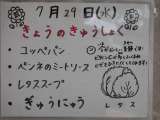 7月29日(水)
きょうのきゅうしょく
・コッペパン
・ペンネのミートソース
・レタススープ
・ぎゅうにゅう
レタス